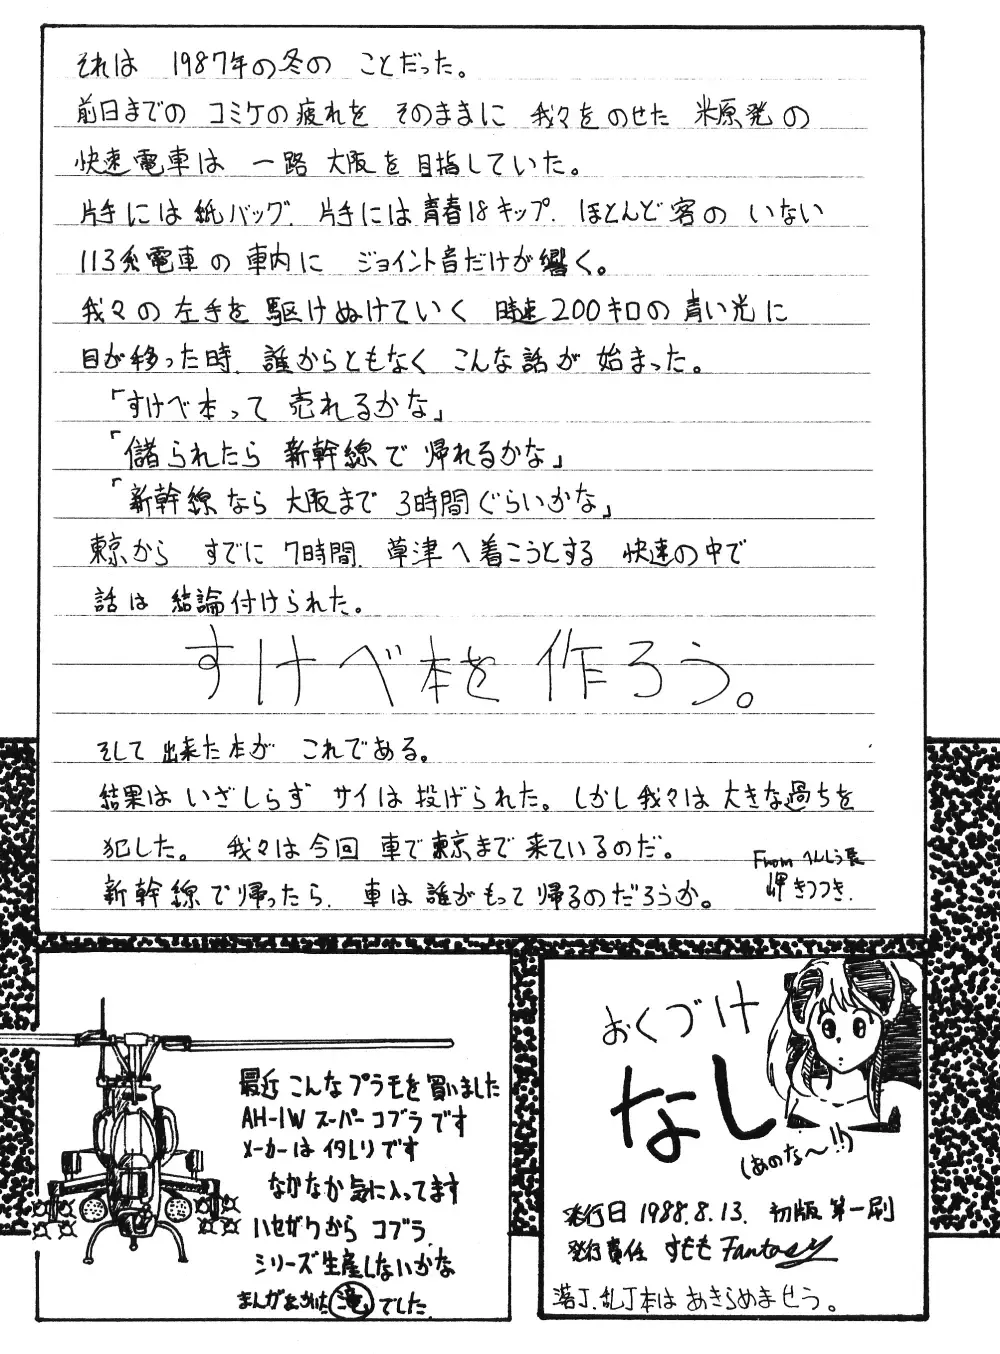 それは 1987年の冬の ことだった。
前日までの コミケの疲れを そのままに 我々をのせた 米原発の
快速電車は 一路 大阪を目指していた。
片手には紙バッグ、片手には青春18キップ、ほとんど客の いない
113系電車の 車内に ジョイント音だけが響く。
我々の左手を 駆けぬけていく 時速200キロの青い光に
目が移った時、誰からともなく こんな話が 始まった。
「すけべ本って 売れるかな」
「儲られたら 新幹線で 帰れるかな」
「新幹線なら 大阪まで 3時間ぐらいかな」
東京から すでに 7時間、草津へ着こうとする 快速の中で
話は 結論付けられた。
すけべ本を作ろう。
そして 出来た本が これである。
結果は いざしらず サイは投げられた。しかし我々は 大きな過ちを
犯した。 我々は今回 車で東京まで来ているのだ。
新幹線で帰ったら、車は誰がもって帰るのだろうか。
From へんしう長
岬 きつつき.
最近 こんなプラモを買いました
AH-1W スーパーコブラです
メーカーは イタレリです
なかなか気に入ってます
ハセガワから コブラ
シリーズ生産しないかな
まんがをかいた 滝 でした.
おくづけ
なし
(あのな〜!!)
発行日 1988.8.13. 初版 第一刷
発行責任 すもも Fantasy
落丁、乱丁本は あきらめませう。